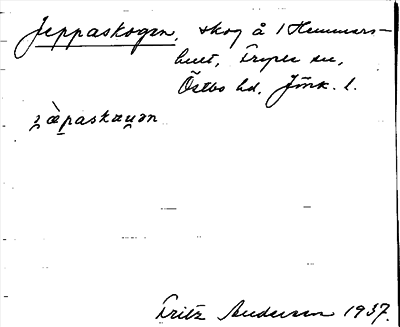 Jeppaskogen, skog å 1 Hemmars-
hult, Tryper sn,
Östbo hd, Jönk. l.
ʒæ̀paskaɯən
Fritz Anderson 1937.